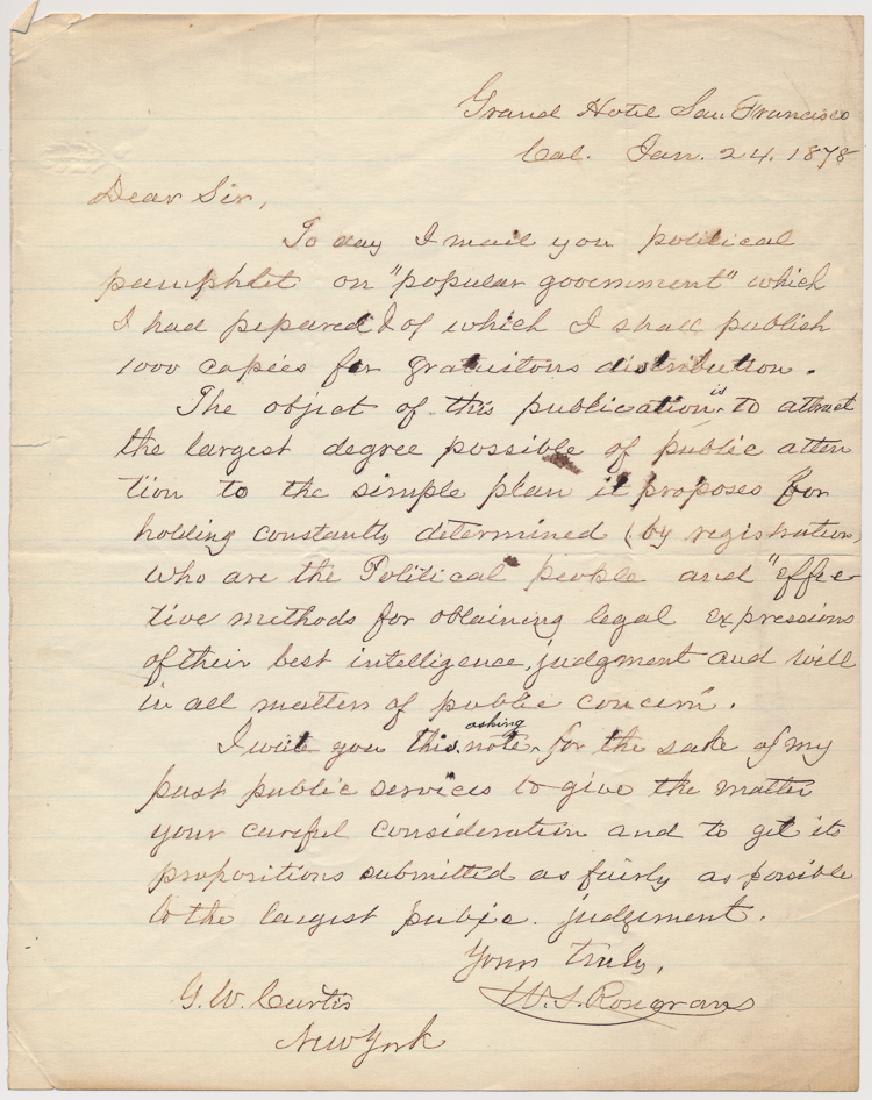 Grand Hotel San Francisco
Cal. Jan. 24. 1878
Dear Sir,
To day I mail you political
pamphlet on "popular government" which
I had pepared & of which I shall publish
1000 copies for gratuitous distribution.
The object of this publication is to attract
the largest degree possible of public atten
tion to the simple plan it proposes for
holding constantly determined (by registration)
who are the Political people and "effec-
tive methods for obtaining legal expressions
of their best intelligence, judgment and will
in all matters of public concern.
I write you this note asking for the sake of my
past public services to give the matter
your careful consideration and to get its
propositions submitted as fairly as possible
to the largest public judgement.
Yours Truly,
W. S. Rosecrans
G. W. Curtis
New York